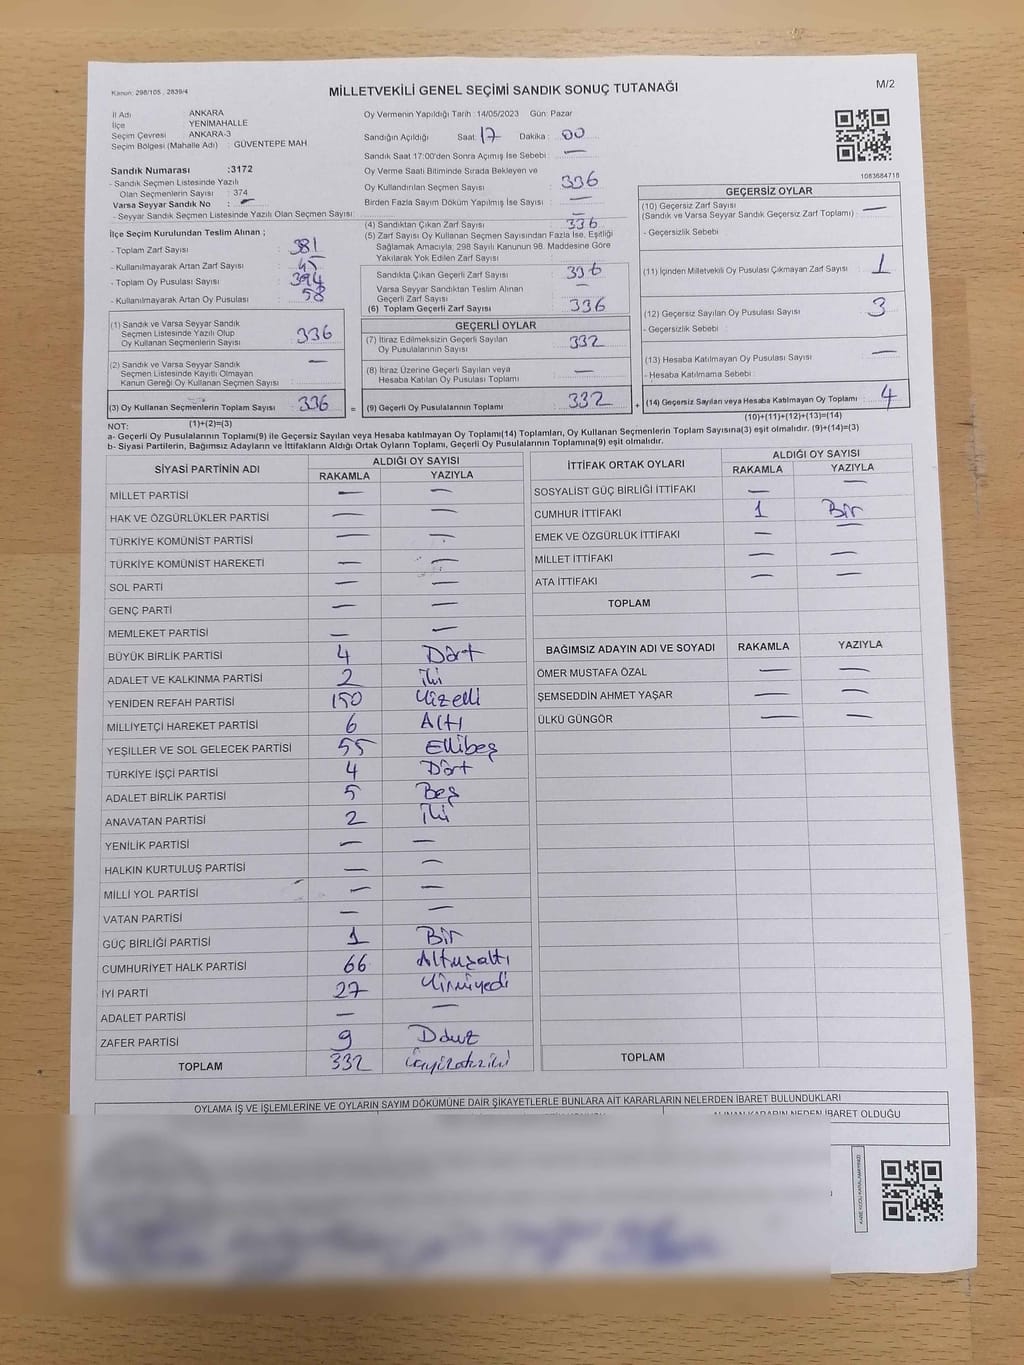 Kanun: 298/105 , 2839/4
MİLLETVEKİLİ GENEL SEÇİMİ SANDIK SONUÇ TUTANAĞI
M/2
İl Adı ANKARA
İlçe YENİMAHALLE
Seçim Çevresi ANKARA-3
Seçim Bölgesi (Mahalle Adı) : GÜVENTEPE MAH
Sandık Numarası :3172
- Sandık Seçmen Listesinde Yazılı
Olan Seçmenlerin Sayısı : 374
Varsa Seyyar Sandık No : —
- Seyyar Sandık Seçmen Listesinde Yazılı Olan Seçmen Sayısı:
İlçe Seçim Kurulundan Teslim Alınan ;
- Toplam Zarf Sayısı : 381
- Kullanılmayarak Artan Zarf Sayısı : 45
- Toplam Oy Pusulası Sayısı : 394
- Kullanılmayarak Artan Oy Pusulası : 58
(1) Sandık ve Varsa Seyyar Sandık
Seçmen Listesinde Yazılı Olup
Oy Kullanan Seçmenlerin Sayısı : 336
(2) Sandık ve Varsa Seyyar Sandık —
Seçmen Listesinde Kayıtlı Olmayan
Kanun Gereği Oy Kullanan Seçmen Sayısı :
(3) Oy Kullanan Seçmenlerin Toplam Sayısı : 336
(1)+(2)=(3)
Oy Vermenin Yapıldığı Tarih : 14/05/2023 Gün: Pazar
Sandığın Açıldığı Saat: 17 Dakika : 00
Sandık Saat 17:00'den Sonra Açılmış İse Sebebi : —
Oy Verme Saati Bitiminde Sırada Bekleyen ve
Oy Kullandırılan Seçmen Sayısı : 336
Birden Fazla Sayım Döküm Yapılmış İse Sayısı : —
(4) Sandıktan Çıkan Zarf Sayısı : 336
(5) Zarf Sayısı Oy Kullanan Seçmen Sayısından Fazla İse, Eşitliği
Sağlamak Amacıyla, 298 Sayılı Kanunun 98. Maddesine Göre
Yakılarak Yok Edilen Zarf Sayısı :
Sandıkta Çıkan Geçerli Zarf Sayısı : 336
Varsa Seyyar Sandıktan Teslim Alınan —
Geçerli Zarf Sayısı :
(6) Toplam Geçerli Zarf Sayısı : 336
GEÇERLİ OYLAR
(7) İtiraz Edilmeksizin Geçerli Sayılan : 332
Oy Pusulalarının Sayısı
(8) İtiraz Üzerine Geçerli Sayılan veya : —
Hesaba Katılan Oy Pusulası Toplamı
= (9) Geçerli Oy Pusulalarının Toplamı : 332
1083684718
GEÇERSİZ OYLAR
(10) Geçersiz Zarf Sayısı : —
(Sandık ve Varsa Seyyar Sandık Geçersiz Zarf Toplamı)
- Geçersizlik Sebebi :
(11) İçinden Milletvekili Oy Pusulası Çıkmayan Zarf Sayısı : 1
(12) Geçersiz Sayılan Oy Pusulası Sayısı : 3
- Geçersizlik Sebebi :
(13) Hesaba Katılmayan Oy Pusulası Sayısı : —
- Hesaba Katılmama Sebebi :
+ (14) Geçersiz Sayılan veya Hesaba Katılmayan Oy Toplamı : 4
(10)+(11)+(12)+(13)=(14)
NOT:
a- Geçerli Oy Pusulalarının Toplamı(9) ile Geçersiz Sayılan veya Hesaba katılmayan Oy Toplamı(14) Toplamları, Oy Kullanan Seçmenlerin Toplam Sayısına(3) eşit olmalıdır. (9)+(14)=(3)
b- Siyasi Partilerin, Bağımsız Adayların ve İttifakların Aldığı Ortak Oyların Toplamı, Geçerli Oy Pusulalarının Toplamına(9) eşit olmalıdır.
SİYASİ PARTİNİN ADI ALDIĞI OY SAYISI
RAKAMLA YAZIYLA
MİLLET PARTİSİ — —
HAK VE ÖZGÜRLÜKLER PARTİSİ — —
TÜRKİYE KOMÜNİST PARTİSİ — —
TÜRKİYE KOMÜNİST HAREKETİ — —
SOL PARTİ — —
GENÇ PARTİ — —
MEMLEKET PARTİSİ — —
BÜYÜK BİRLİK PARTİSİ 4 Dört
ADALET VE KALKINMA PARTİSİ 2 iki
YENİDEN REFAH PARTİSİ 150 Yüzelli
MİLLİYETÇİ HAREKET PARTİSİ 6 Altı
YEŞİLLER VE SOL GELECEK PARTİSİ 55 Ellibeş
TÜRKİYE İŞÇİ PARTİSİ 4 Dört
ADALET BİRLİK PARTİSİ 5 Beş
ANAVATAN PARTİSİ 2 İki
YENİLİK PARTİSİ — —
HALKIN KURTULUŞ PARTİSİ — —
MİLLİ YOL PARTİSİ — —
VATAN PARTİSİ — —
GÜÇ BİRLİĞİ PARTİSİ 1 Bir
CUMHURİYET HALK PARTİSİ 66 Altmışaltı
İYİ PARTİ 27 Yirmiyedi
ADALET PARTİSİ — —
ZAFER PARTİSİ 9 Dokuz
TOPLAM 332
İTTİFAK ORTAK OYLARI ALDIĞI OY SAYISI
RAKAMLA YAZIYLA
SOSYALİST GÜÇ BİRLİĞİ İTTİFAKI — —
CUMHUR İTTİFAKI 1 Bir
EMEK VE ÖZGÜRLÜK İTTİFAKI — —
MİLLET İTTİFAKI — —
ATA İTTİFAKI — —
TOPLAM
BAĞIMSIZ ADAYIN ADI VE SOYADI RAKAMLA YAZIYLA
ÖMER MUSTAFA ÖZAL — —
ŞEMSEDDİN AHMET YAŞAR — —
ÜLKÜ GÜNGÖR — —
TOPLAM
OYLAMA İŞ VE İŞLEMLERİNE VE OYLARIN SAYIM DÖKÜMÜNE DAİR ŞİKAYETLERLE BUNLARA AİT KARARLARIN NELERDEN İBARET BULUNDUKLARI
ALINAN KARARIN NEDEN İBARET OLDUĞU